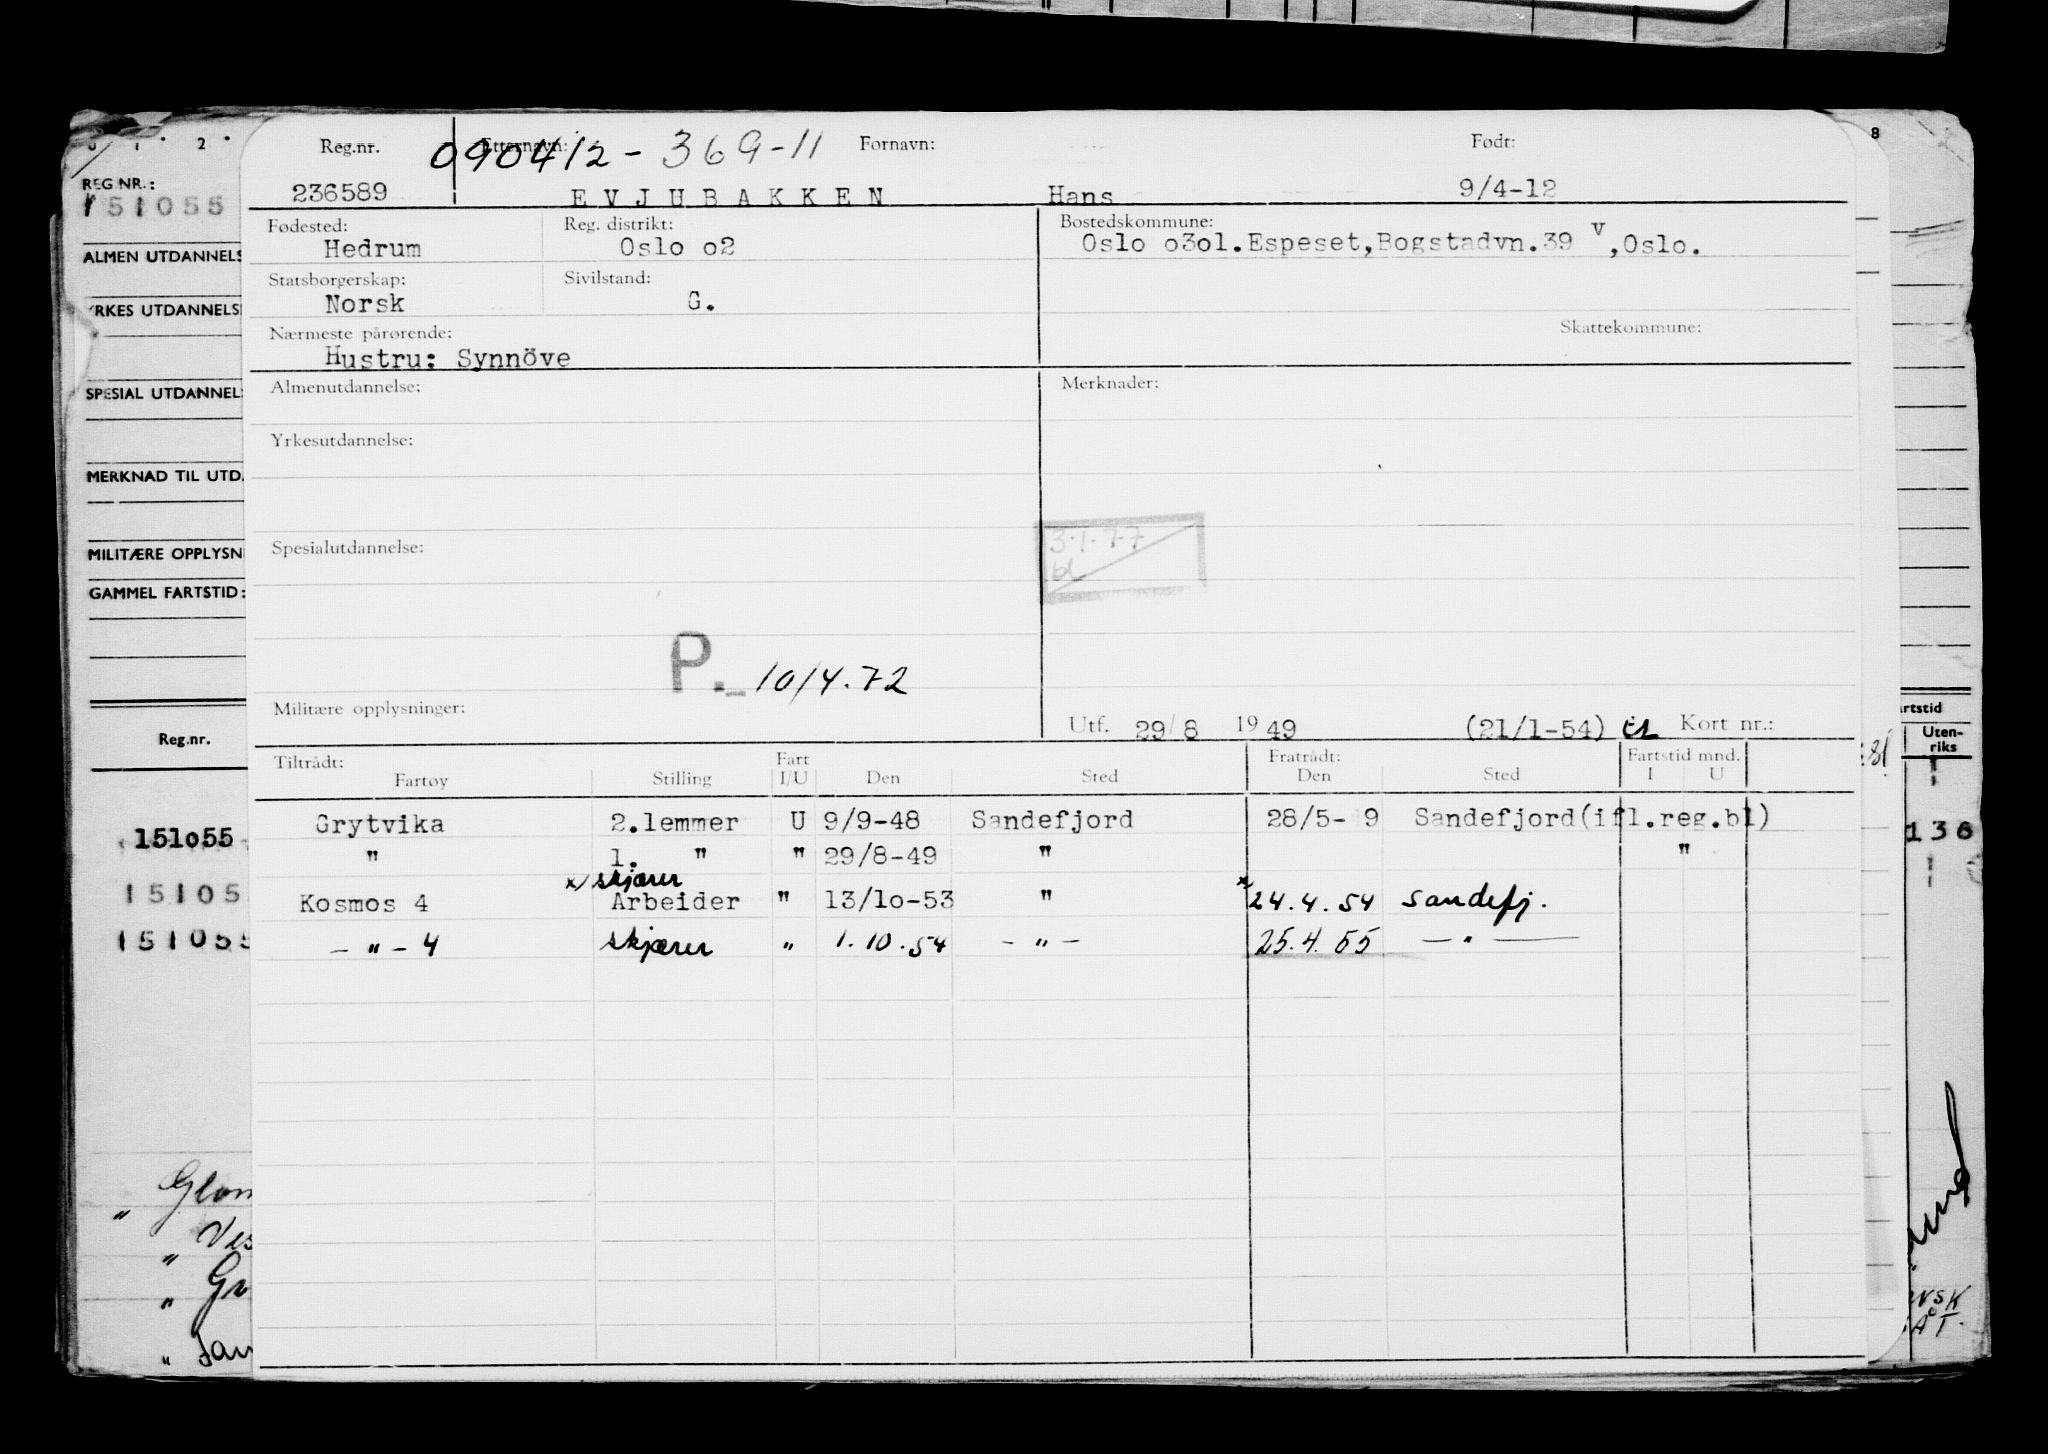 REG NR.:
151055
ALMEN UTDANNELS
YRKES UTDANNELS
SPESIAL UTDANNEL
MERKNAD TIL UTD.
MILITÆRE OPPLYSN
GAMMEL FARTSTID:
Reg.nr.
151o55
15105
151055
Reg.nr. Etternavn: 090412-369-11 Fornavn: Født:
236589 EVJUBAKKEN Hans 9/4-12
Fødested: Reg. distrikt: Bostedskommune:
Hedrum Oslo o2 Oslo o3ol.Espeset,Bogstadvn.39 V,Oslo.
Statsborgerskap: Sivilstand:
Norsk G.
Nærmeste pårørende: Skattekommune:
Hustru: Synnöve
Almenutdannelse: Merknader:
Yrkesutdannelse:
Spesialutdannelse: 3.1.77
bl
P. 10/4.72
Militære opplysninger: Utf. 29/8 1949 (21/1-54) Kort nr.:
Tiltrådt: Fart Fratrådt: Fartstid mnd.
Fartøy Stilling I/U Den Sted Den Sted I U
Grytvika 2.lemmer U 9/9-48 Sandefjord 28/5- 9 Sandefjord(ifl.reg.bl)
" 1. " " 29/8-49 " "
x/ skjærer
Kosmos 4 Arbeider " 13/1o-53 " x 24.4.54 Sandefj.
- " - 4 skjærer " 1.10.54 - " - 25.4.55 - " -
8
rtstid
Uten-
riks
136